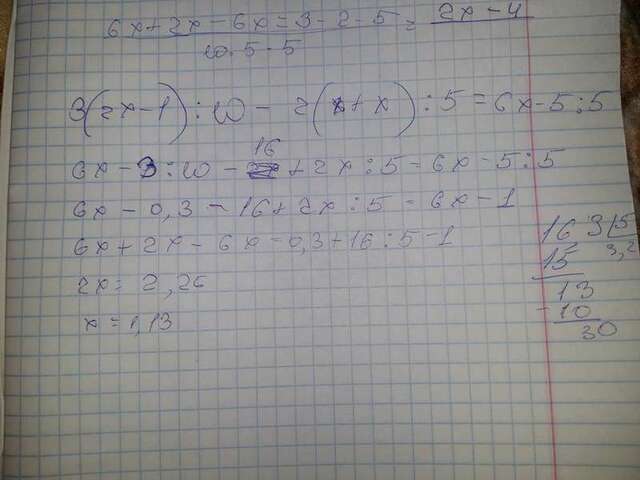 6x+2x-6x=3-2-5 = 2x-4
10·5-5
3(2x-1):10 - 2( +x):5=6x-5:5
16
6x-3:10- +2x:5-6x-5:5
6x-0,3-16+2x:5=6x-1
6x+2x-6x=0,3+16:5-1
2x=2,26
x=1,13
16 3|5
15 3,2
13
-10
30